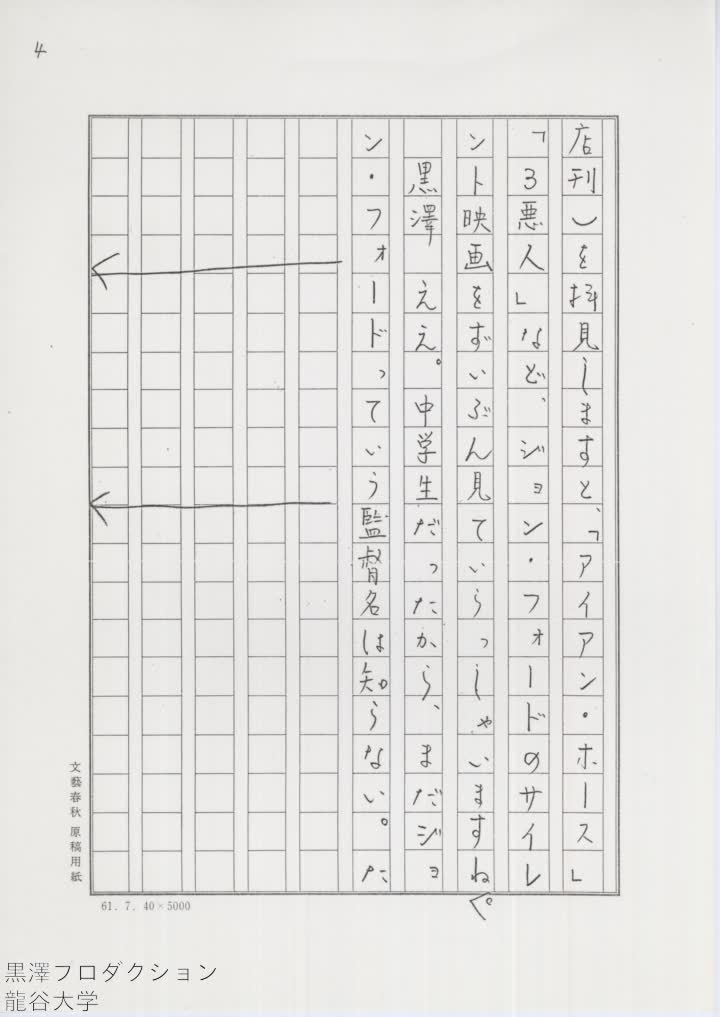 4
店刊)を拝見しますと、「アイアン・ホース」
「3悪人」など、ジョン・フォードのサイレ
ント映画をずいぶん見ていらっしゃいますね。
黒澤 ええ。中学生だったから、まだジョ
ン・フォードっていう監督名は知らない。た
文藝春秋 原稿用紙
61. 7. 40×5000
黒澤フロダクション
龍谷大学